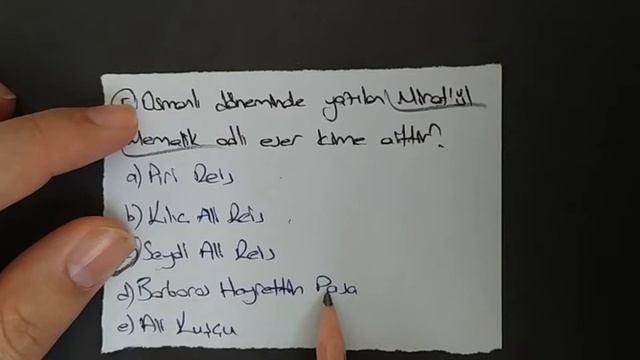 5) Osmanlı döneminde yazılan Mirat'ül
Memalik adlı eser kime aittir?
a) Piri Reis
b) Kılıc Ali Reis
c) Seydi Ali Reis
d) Barbaros Hayrettin Paşa
e) Ali Kuşçu